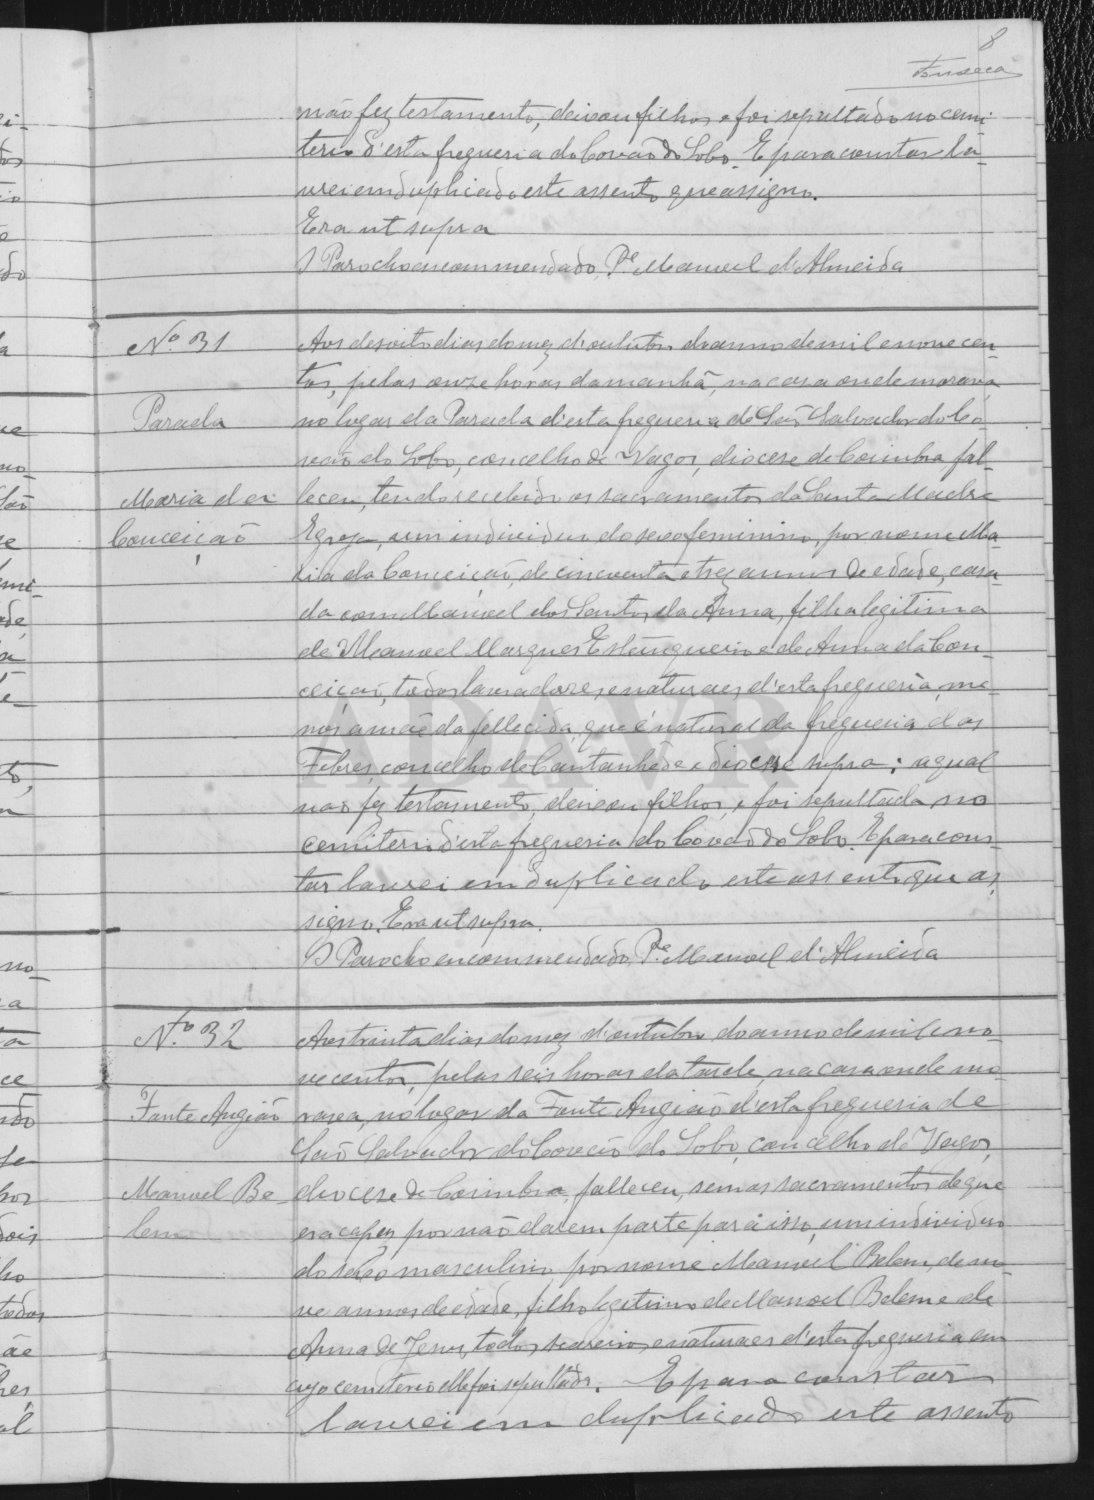 8
Fonseca
não fez testamento, deixou filhos e foi sepultado no cemi-
terio d'esta freguesia do Covão do Lobo. E para constar la-
vrei em duplicado este assento que assigno.
Era ut supra
O Parocho encommendado, Pe Manuel d'Almeida
No. 31
Parada
Maria da
Conceição
Aos desoito dias do mez d'outubro do anno de mil e novecen-
tos, pelas onze horas da manhã, na casa onde morava
no lugar da Parada d'esta freguesia de São Salvador do Co-
vão do Lobo, concelho de Vagos, diocese de Coimbra fal-
leceu, tendo recebido os sacramentos da Santa Madre
Egreja, um individuo do sexo feminino, por nome Ma-
ria da Conceição, de cincoenta e trez annos de edade, casa-
da com Manoel dos Santos da Anna, filha legitima
de Manoel Marques Estanqueiro e de Anna da Con-
ceição, todos lavradores, e naturaes d'esta freguesia, me-
nos a mãe da fallecida, que é natural da freguesia das
Febres, concelho de Cantanhede e diocese supra; a qual
não fez testamento, deixou filhos, e foi sepultada no
cemiterio d'esta freguesia do Covão do Lobo. E para cons-
tar lavrei em duplicado este assento que as-
signo. Era ut supra.
O Parocho encommendado, Pe Manoel d'Almeida
N.o 32
Fonte Angião
Manuel Be-
lem
Aos trinta dias do mez d'outubro do anno de mil e no-
vecentos, pelas seis horas da tarde, na casa onde mo-
rava, no lugar da Fonte Angião d'esta freguesia de
São Salvador do Covão do Lobo, concelho de Vagos,
diocese de Coimbra, falleceu, sem os sacramentos de que
era capaz por não darem parte para isso, um individuo
do sexo masculino por nome Manuel Belem, de no-
ve annos de edade, filho legitimo de Manoel Belem e de
Anna de Jesus, todos seareiros e naturaes d'esta freguesia em
cujo cemiterio elle foi sepultado. E para constar
lavrei em duplicado este assento
ADAVR